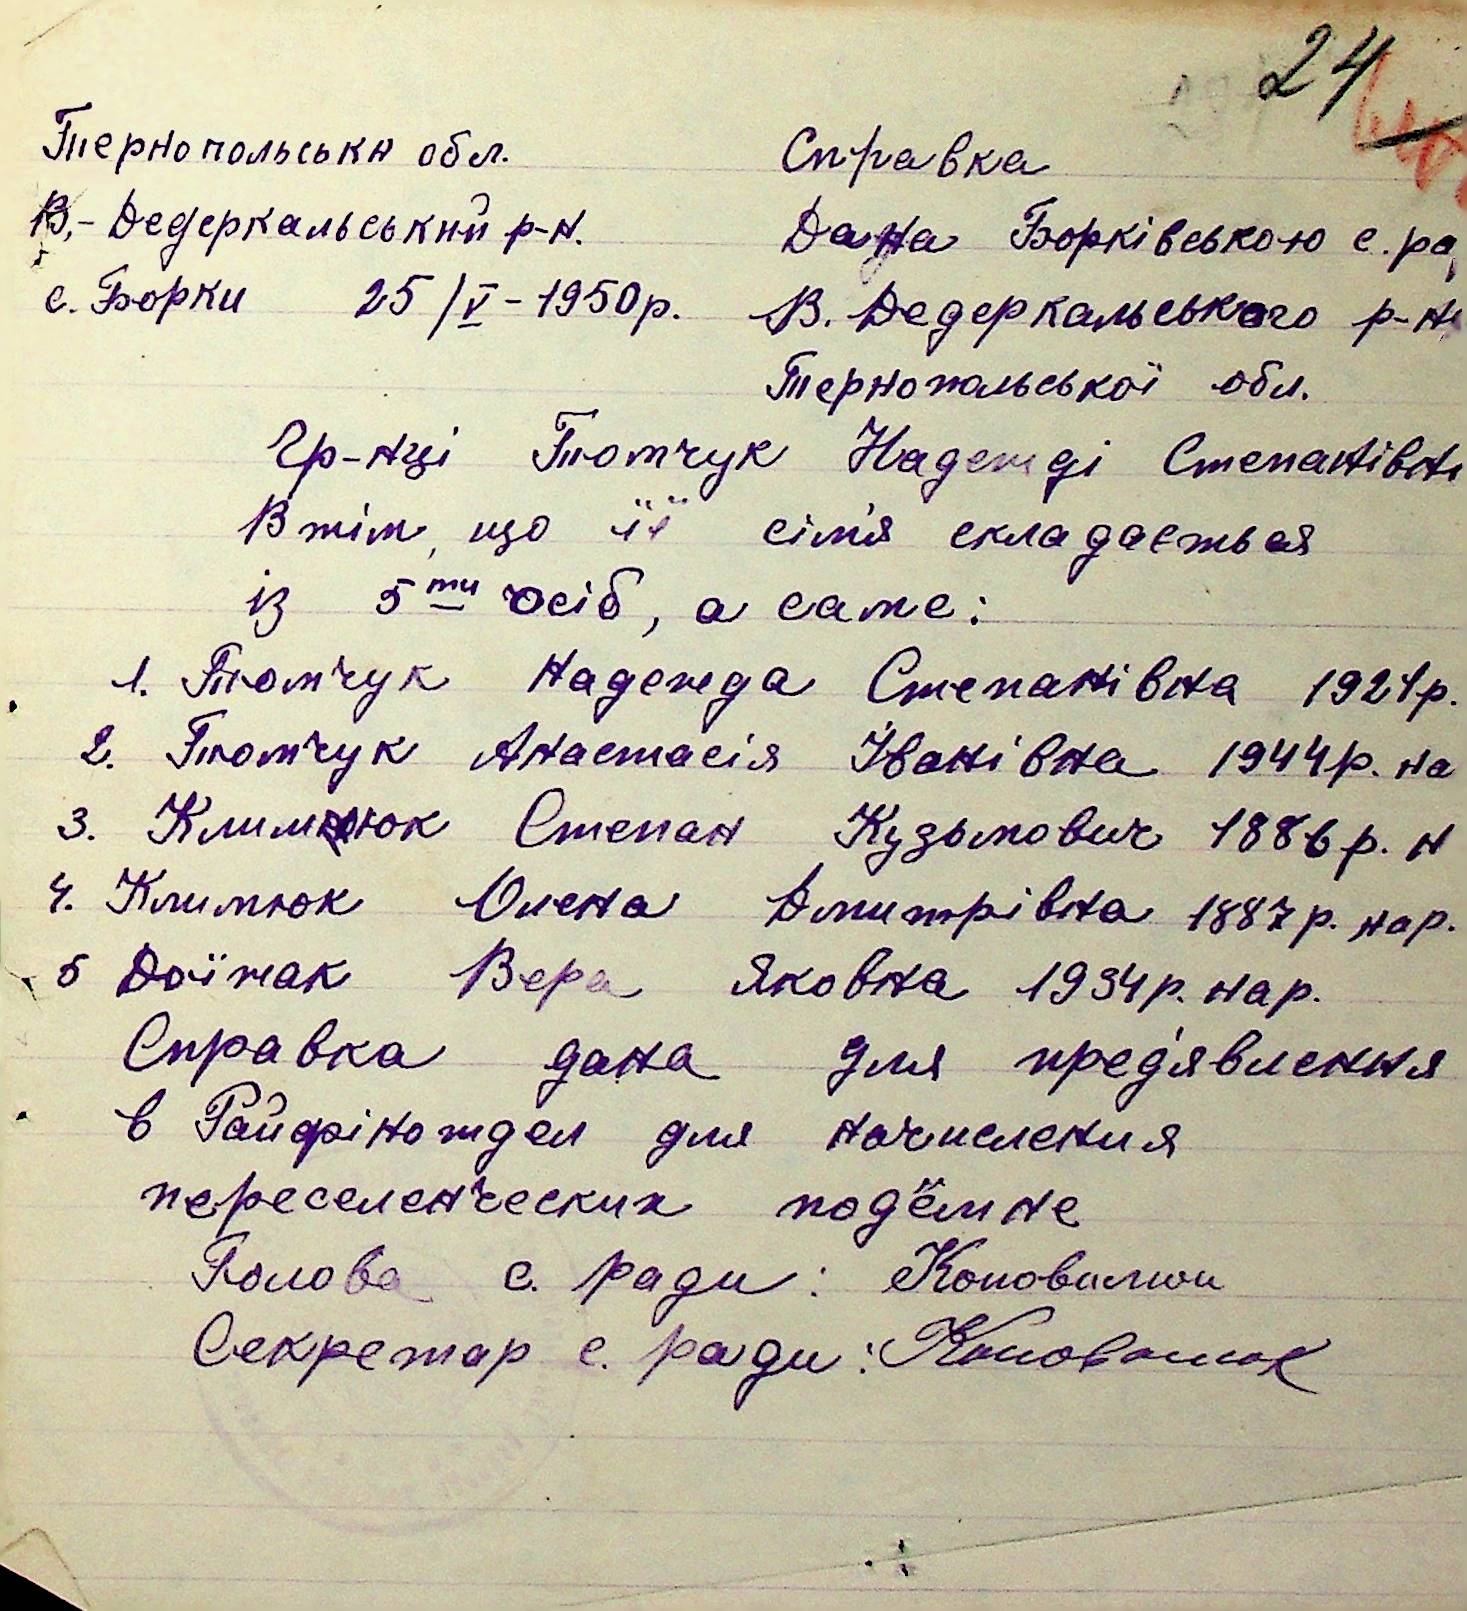 24
Тернопольськи обл.
В.-Дедеркальський р-н.
с. Борки 25/V-1950р.
Справка
Дана Борківською с. ра
В. Дедеркальського р-н
Тернопольської обл.
Гр-нці Тютчук Надежді Степанівн
В тім, що її сім'я складається
із 5ти осіб, а саме:
1. Тютчук Надежда Степанівна 1921р.
2. Тютчук Анастасія Іванівна 1944р. на
3. Климюк Степан Кузьмович 1886р. н
4. Климюк Олена Дмитрівна 1887р. нар.
5 Доїжак Вера Яковна 1934р. нар.
Справка дана для пред'явлення
в Райфінождел для начисления
переселенческих под'ёмне
Голова с. ради:
Секретар с. ради: Коновалюк